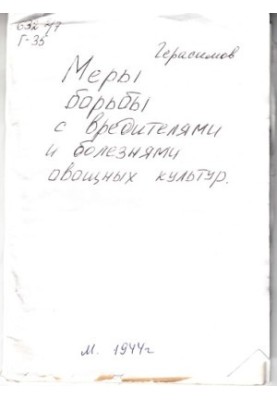 632 47
Г-35
Герасимов
Меры
борьбы
с вредителями
и болезнями
овощных культур.
М. 1944г